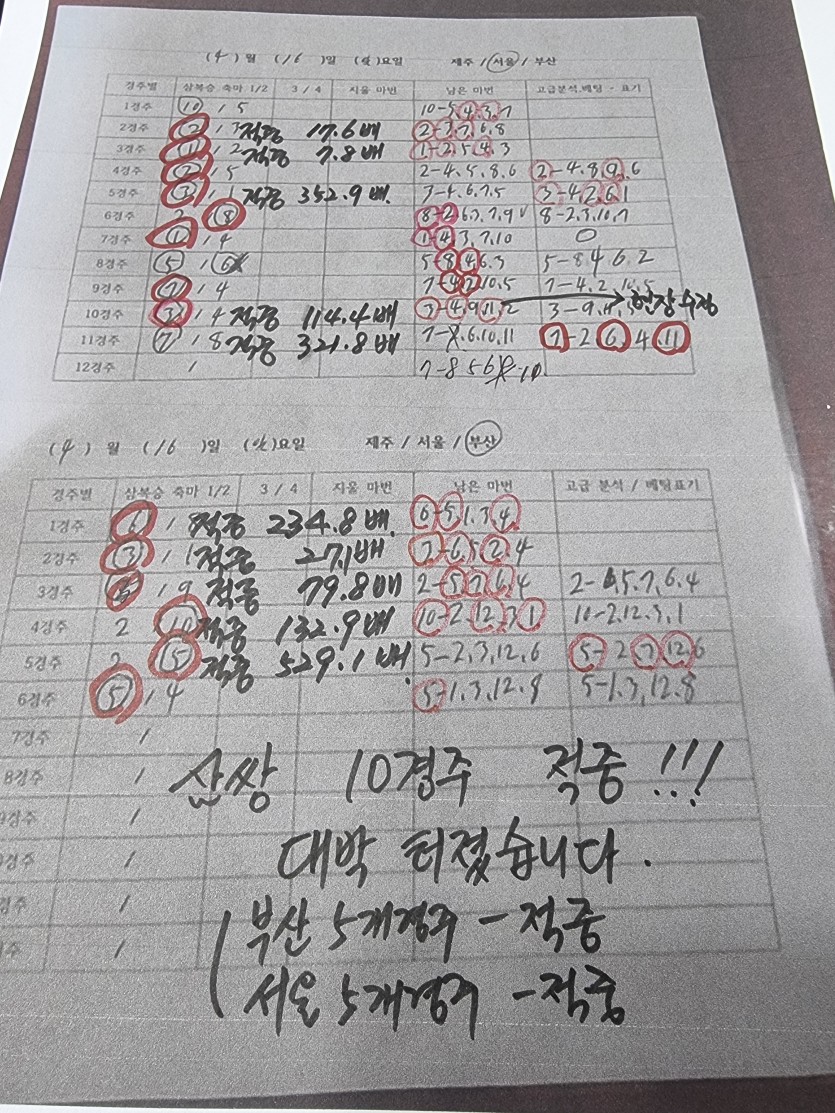 (4) 월 (16) 일 (일)요일 제주 / 서울 / 부산
경주별 삼복승 축마 1/2 3 / 4 지울 마번 남은 마번 고급분석,베팅 - 표기
1경주 10 / 5 10-5,4,3,7
2경주 2 / 3 적중 17.6 배 2-3,7,6,8
3경주 1 / 2 적중 7.8 배 1-2,5,4,3
4경주 2 / 5 2-4,5,8,6 2-4.8,9,6
5경주 3 / 1 적중 352.9 배. 3-4.6.7,5 3-4,2,6,1
6경주 2 / 8 8-2,6,7,9 8-2,3,10,7
7경주 1 / 4 1-4,3,7,10 0
8경주 5 / 6 5-8,4,6.3 5-8 4 6.2
9경주 7 / 4 7-4,2,10,5 7-4.2
10경주 3 / 4 적중 114.4 배 3-4,9,11,2 3-9 현장수정
11경주 7 / 8 적중 321.8 배 7-8.6,10,11 7-2 6 4 11
12경주 / 7-8 5 6 10
(4) 월 (16) 일 (일)요일 제주 / 서울 / 부산
경주별 삼복승 축마 1/2 3 / 4 지울 마번 남은 마번 고급 분석 / 베팅표기
1경주 6 / 8 적중 234.8 배. 6-5,1.3,4
2경주 3 / 1 적중 27.1배 3-6,5,2,4
3경주 5 / 9 적중 79.8배 2-5,7,6,4 2-5.7,6.4
4경주 2 10 적중 132.9 배 10-2,12,3,1 10-2,12.3,1
5경주 2 5 적중 529.1 배. 5-2,3,12,6 5-2,7,12,6
6경주 5 / 4 5-1,3,12,8 5-1.3,12.8
7경주 /
8경주 /
9경주 /
경주 /
경주 /
경주 /
삼쌍 10경주 적중 !!!
대박 터졌습니다.
부산 5개경주 - 적중
서울 5개경주 - 적중